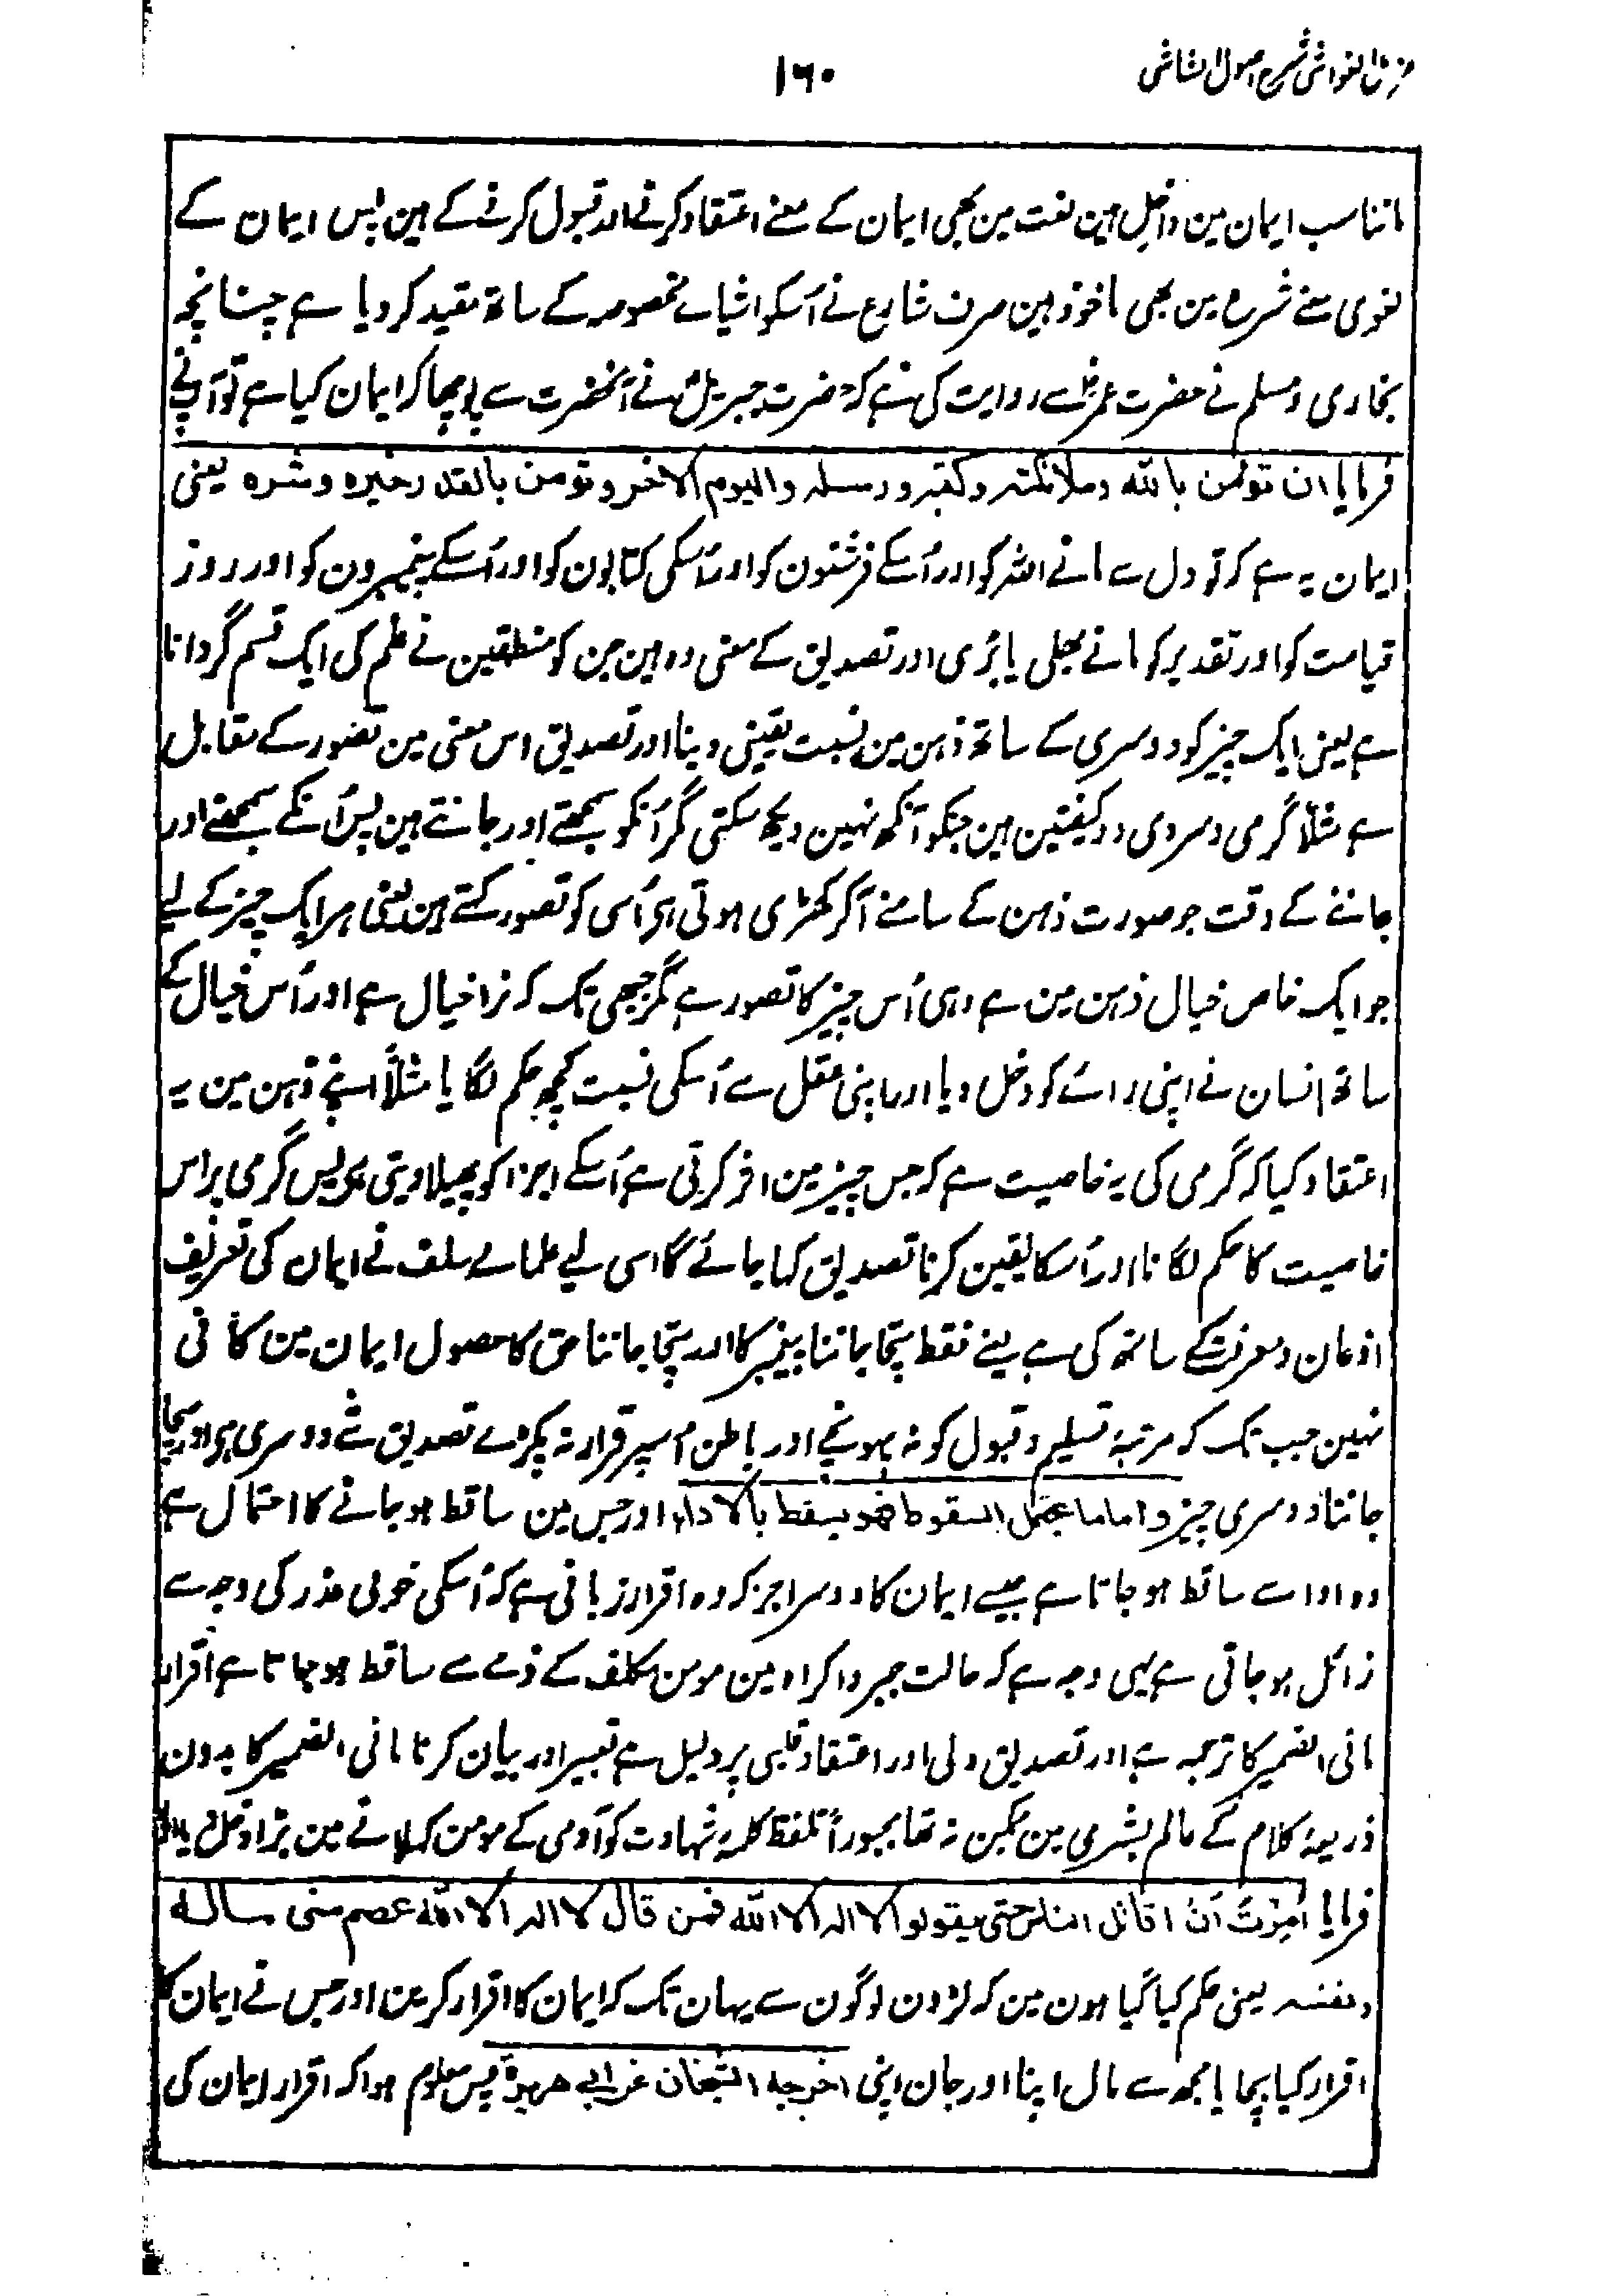 مزیل الغواشی شرح اصول الشاشی
۱۶۰
ماننا سب ایمان مین داخل ہین لغت مین بھی ایمان کے معنے اعتقاد کرنے اور قبول کرنے کے ہین پس ایمان کے
لغوی معنے شرع مین بھی ماخوذ ہین صرف شارع نے اُسکو اشیاے مخصوصہ کے ساتھ مقید کر دیا ہے چنانچہ
بخاری و مسلم نے حضرت عمرؓ سے روایت کی ہے کہ حضرت جبریلؑ نے آنحضرت سے پوچھا کہ ایمان کیا ہے تو آپنے
فرمایا ان تؤمن باللہ وملائکتہ وکتبہ ورسلہ والیوم الاٰخر وتومن بالقدر خیرہ وشرہ یعنی
ایمان یہ ہے کہ تو دل سے مانے اللہ کو اور اُسکے فرشتون کو اور اُسکی کتابون کو اور اُسکے پیغمبرون کو اور روز
قیامت کو اور تقدیر کو مانے بھلی یا بُری اور تصدیق کے معنی وہ ہین جن کو منطقیین نے علم کی ایک قسم گردانا
ہے یعنی ایک چیز کو دوسری کے ساتھ ذہن مین نسبت یقینی دینا اور تصدیق اس معنی مین تصور کے مقابل
ہے مثلاً گرمی و سردی دو کیفیتین ہین جنکو آنکھ نہین دیکھ سکتی مگر اُنکو سمجھتے اور جانتے ہین پس اُنکے سمجھنے اور
جاننے کے وقت جو صورت ذہن کے سامنے آکر کھڑی ہوتی ہو اُسی کو تصور کہتے ہین یعنی ہر ایک چیز کے لیے
جو ایک خاص خیال ذہن مین ہے وہی اُس چیز کا تصور ہے مگر جبھی تک کہ نرا خیال ہے اور اُس خیال کے
ساتھ انسان نے اپنی رائے کو دخل دیا اور اپنی عقل سے اُسکی نسبت کچھ حکم لگایا مثلاً اپنے ذہن مین یہ
اعتقاد کیا کہ گرمی کی یہ خاصیت ہے کہ جس چیز مین اثر کرتی ہے اُسکے اجزا کو پھیلا دیتی ہو پس گرمی پر اس
خاصیت کا حکم لگانا اور اُسکا یقین کرنا تصدیق کہا جائے گا اسی لیے علماے سلف نے ایمان کی تعریف
اذعان و معرفت کے ساتھ کی ہے یعنے فقط سچا جاننا پیغمبر کا اور سچا جاننا حق کا حصول ایمان مین کافی
نہین جب تک کہ مرتبۂ تسلیم و قبول کو نہ پہونچے اور باطن اُسپر قرار نہ پکڑے تصدیق شے دوسری ہو اور سچا
جاننا دوسری چیز واما ما یحتمل السقوط فھو یسقط بالاداء اور جس مین ساقط ہو جانے کا احتمال ہے
وہ ادا سے ساقط ہو جاتا ہے جیسے ایمان کا دوسرا جز کہ وہ اقرار زبانی ہے کہ اُسکی خوبی عذر کی وجہ سے
زائل ہو جاتی ہے یہی وجہ ہے کہ حالت جبر و اکراہ مین مومن مکلف کے ذمے سے ساقط ہو جاتا ہے اقرار
مافی الضمیر کا ترجمہ ہے اور تصدیق دلی اور اعتقاد قلبی پر دلیل ہے تعبیر اور بیان کرنا مافی الضمیر کا بدون
ذریعۂ کلام کے عالم بشری مین ممکن نہ تھا مجبوراً تلفظ کلمۂ شہادت کو آدمی کے مومن کہلانے مین بڑا دخل
فرمایا اُمِرْتُ اَنْ اقاتل الناس حتی یقولوا لا الہ الا اللہ فمن قال لا الہ الا اللہ عصم منی مالہ
ونفسہ یعنی حکم کیا گیا ہون مین کہ لڑون لوگون سے یہان تک کہ ایمان کا اقرار کرین اور جس نے ایمان کا
اقرار کیا بچایا مجھ سے مال اپنا اور جان اپنی اخرجہ الشیخان عن ابی ھریرۃ پس معلوم ہوا کہ اقرار ایمان کی